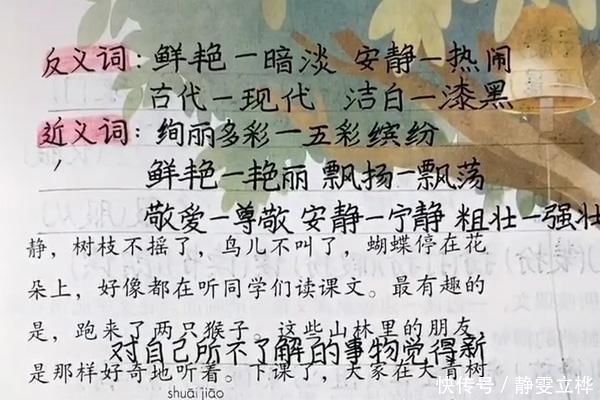 反义词：鲜艳—暗淡 安静—热闹
古代—现代 洁白—漆黑
近义词：绚丽多彩—五彩缤纷
鲜艳—艳丽 飘扬—飘荡
敬爱—尊敬 安静—宁静 粗壮—强壮
静，树枝不摇了，鸟儿不叫了，蝴蝶停在花
朵上，好像都在听同学们读课文。最有趣的
是，跑来了两只猴子。这些山林里的朋友，
对自己所不了解的事物觉得新
是那样好奇地听着。下课了，大家在大青树
shuāi jiāo
快传号 / 静雯立桦